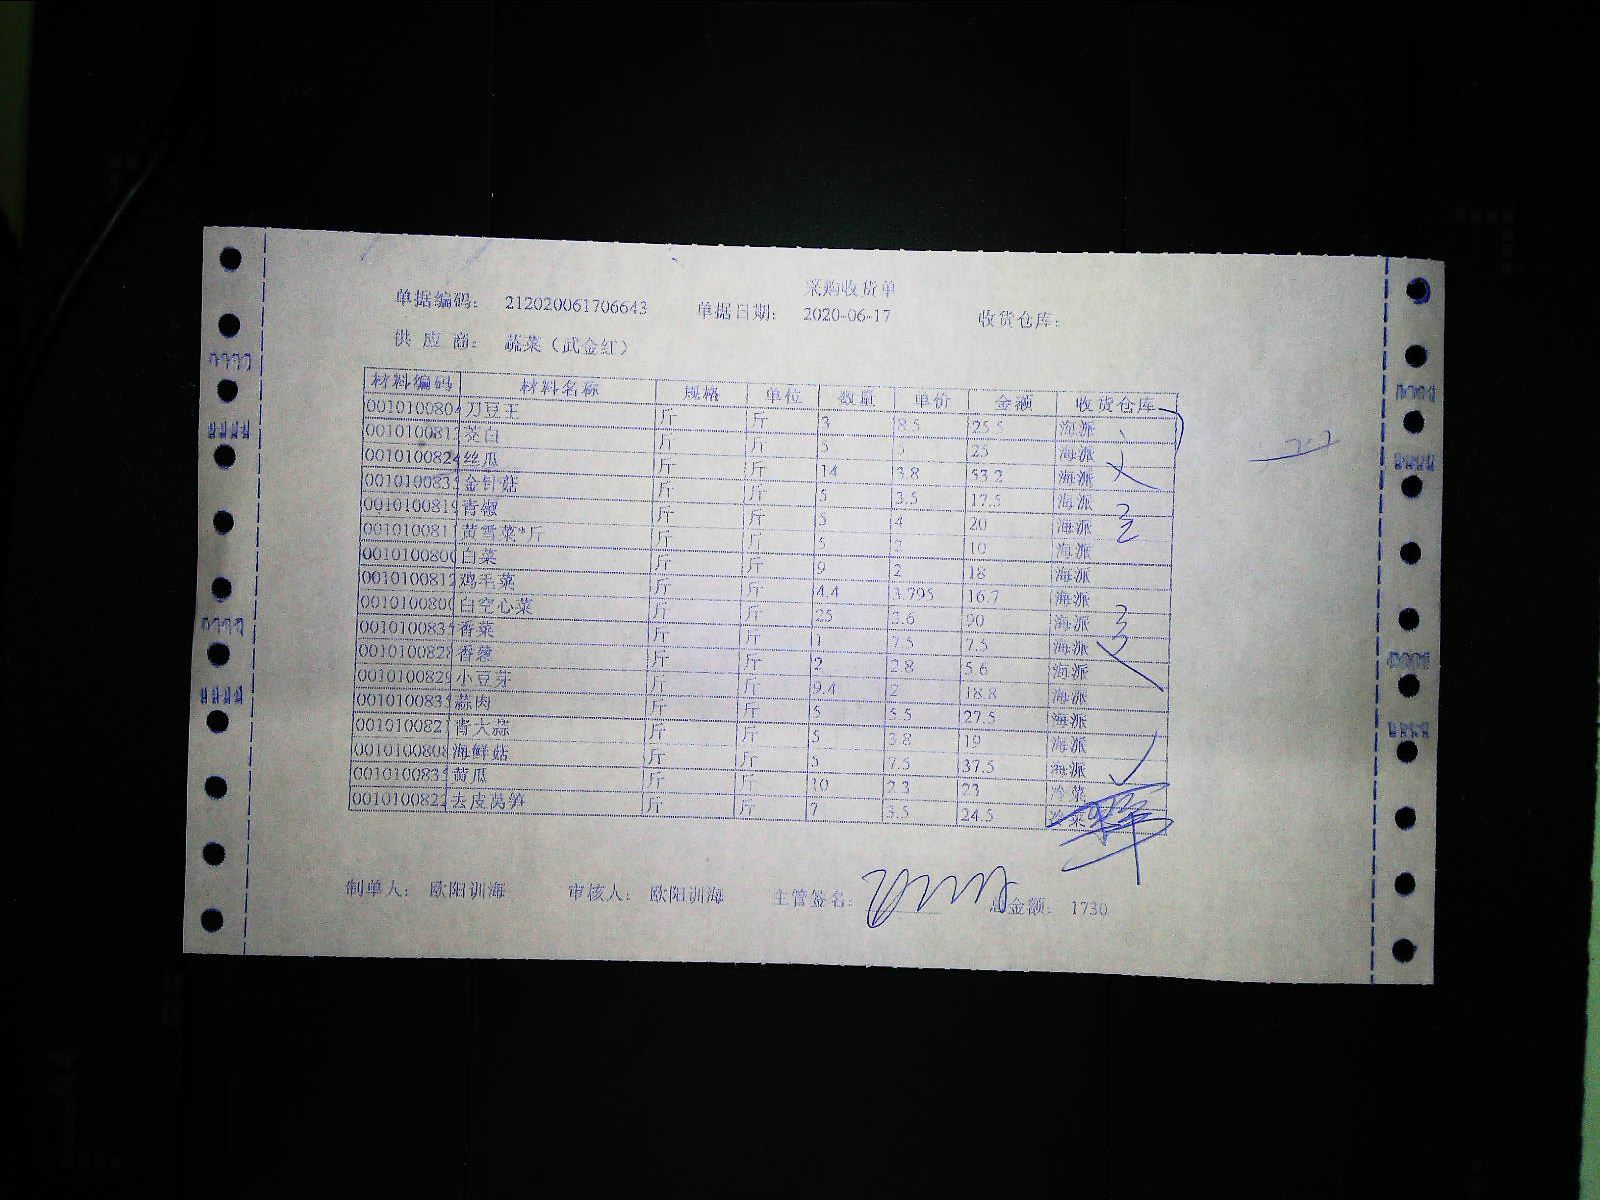 采购收货单
单据编码： 212020061706643 单据日期： 2020-06-17 收货仓库：
供 应 商： 蔬菜（武金红）
材料编码 材料名称 规格 单位 数量 单价 金额 收货仓库
0010100804 刀豆王 斤 斤 3 8.5 25.5 海派
001010081 茭白 斤 斤 5 5 25 海派
0010100824 丝瓜 斤 斤 14 3.8 53.2 海派
001010083 金针菇 斤 斤 5 3.5 17.5 海派
001010081 青椒 斤 斤 5 4 20 海派
001010081 黄雪菜*斤 斤 斤 5 2 10 海派
001010080 白菜 斤 斤 9 2 18 海派
0010100812 鸡毛菜 斤 斤 4.4 3.795 16.7 海派
001010080 白空心菜 斤 斤 25 3.6 90 海派
001010083 香菜 斤 斤 1 7.5 7.5 海派
001010082 香葱 斤 斤 2 2.8 5.6 海派
0010100829 小豆芽 斤 斤 9.4 2 18.8 海派
001010083 蒜肉 斤 斤 5 5.5 27.5 海派
001010082 青大蒜 斤 斤 5 3.8 19 海派
0010100808 海鲜菇 斤 斤 5 7.5 37.5 海派
001010083 黄瓜 斤 斤 10 2.3 23 冷菜
0010100822 去皮莴笋 斤 斤 7 3.5 24.5 冷菜
制单人： 欧阳训海 审核人： 欧阳训海 主管签名： 总金额： 1730